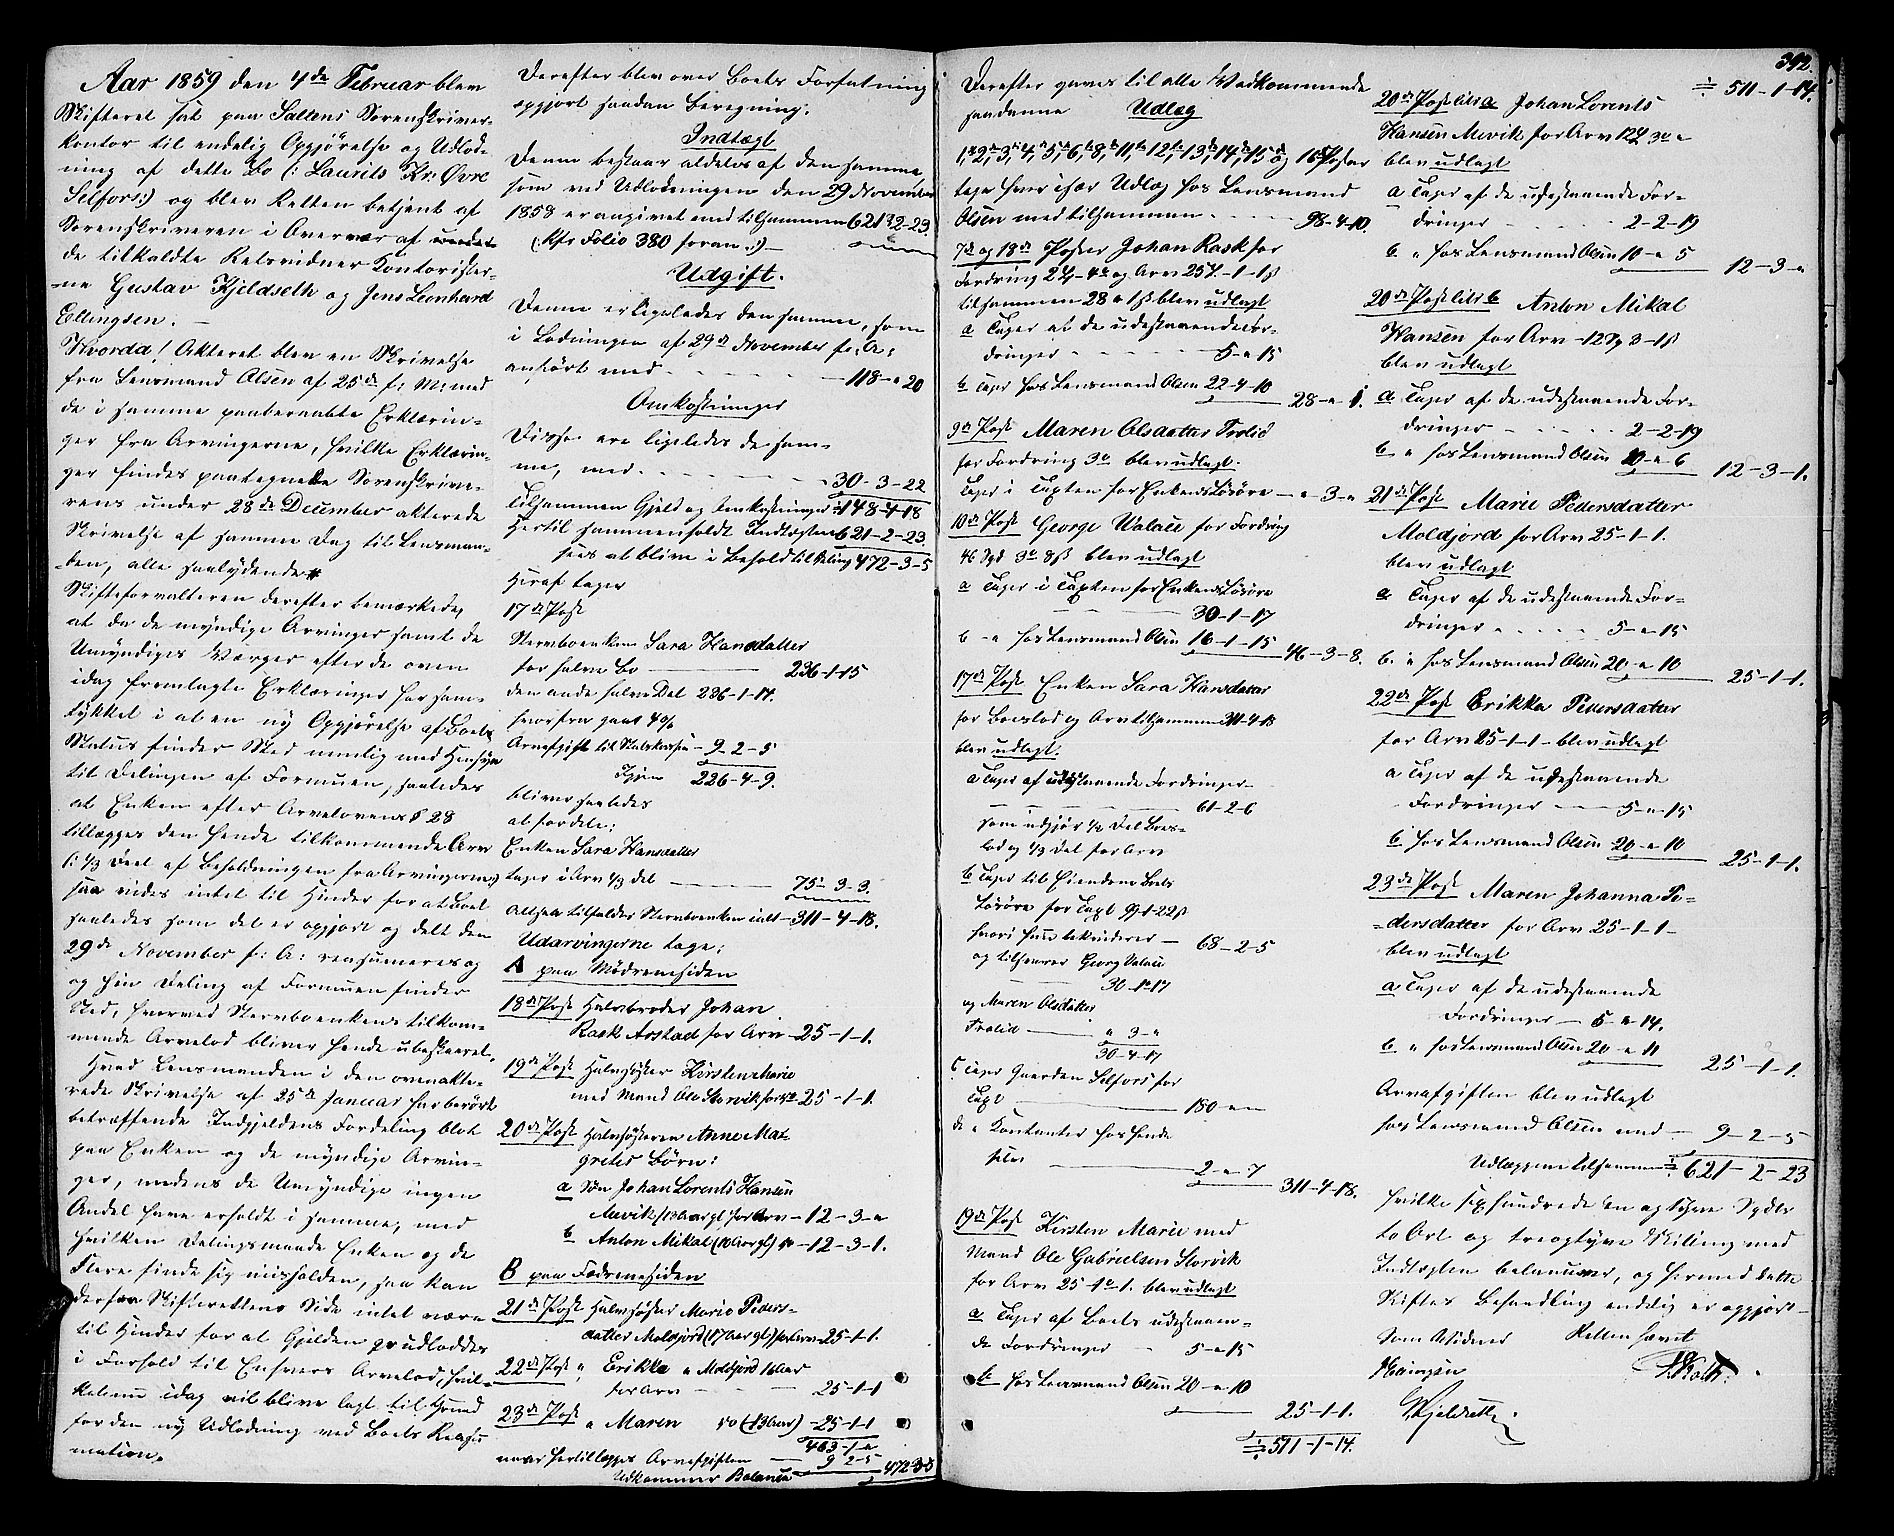 Aar 1859 den 4de Februar blev
Skifteret sat paa Saltens Sorenskriver-
kontor til endelig Opgjørelse og Udlod-
ning af dette Bo (: Laurits Kr: Øvre
Selfors:) og blev Retten betjent af
Sorenskriveren i Overvær af
de tilkaldte Retsvidner Kontorister-
ne Gustav Kjeldseth og Jens Leonhard
Ellingsen. –
Hvorda! Akteret blev en Skrivelse
fra Lensmand Olsen af 25de f: M: med
de i samme paaberaabte Erklærin-
ger fra Arvingerne, hvilke Erklærin-
ger findes paategnede Sorenskrive-
rens under 28de December akterede
Skrivelse af samme Dag til Lensman-
den, alle saalydende
Skifteforvalteren derefter bemærkede,
at da de myndige Arvinger samt de
Umyndiges Værger efter de oven
idag fremlagte Erklæringer har sam-
tykket i at en ny Opgjørelse af Boets
Status finder Sted nemlig med Hensyn
til Delingen af Formuen, saaledes
at Enken efter Arvelovens § 28
tillægges den hende tilkommende Arv
(: 1/3 Deel af Beholdningen fra Arvingerne:)
saa vides intet til Hinder for at Boet
saaledes som det er opgjort og delt den
29de November f: A: reasumeres og
og hin Deling af Formuen finder
Sted, hvorved Stervboenkens tilkom-
mende Arvelod bliver hende ubeskaaret.
Hvad Lensmanden i den ovenakte-
rede Skrivelse af 25de Januar har berørt
betræffende Indgjeldens Fordeling blot
paa Enken og de myndige Arvin-
ger, medens de Umyndige ingen
Andel have erholdt i samme, med
hvilken Delingsmaade Enken og de
Flere finde sig misholden, saa kan
derfra Skifterettens Side intet være
til Hinder for at Gjelden udloddes
i Forhold til Enhvers Arvelod, hvil-
ket nu idag vil blive lagt til Grund
for den ny Udlodning ved Boets Reasu
mation.
Derefter blev over Boets Forfatning
opgjort saadan Beregning:
Indtægt
Denne bestaar aldeles af den samme
som ved Udlodningen den 29 November
1858 er angivet med tilsammen 621-2-23.
(Kfr Folio 380 foran.:) –
Udgift.
Denne er ligeledes den samme, som
i Lodningen af 29de November f: A:
anført med - - - - 118 - " 20
Omkostninger
Disse ere ligeledes de sam-
me, med - - - - 30-3-22
Tilsammen Gjeld og Omkostninger 148-4-18
Hertil sammenholdt Indtægten 621-2-23
sees at blive i Behold til Deling 472-3-5
Heraf tager
17de Post
Stervboenken Sara Hansdatter
for halve Bo — 236-1-15
den anden halve Del 236-1-14.
hvorfra gaar 4%
Arveafgift til Statskassen - 9-2-5
Igjen 226-4-9.
bliver saaledes
at fordele:
Enken Sara Hansdatter
tager i Arv 1/3 del — 75-3-3.
Altsaa tilfalder Stervboenken ialt - 311-4-18.
Udarvingerne tage:
A paa Mødrenesiden
18de Post Halvbroder Johan
Rask Arstad for Arv - 25-1-1.
19de Post Halvsøster Kirsten Marie
med Mand Ole Storvik for do 25-1-1.
20de Post Halvsøsteren Anne Mar-
gretes Børn:
a Søn Johan Lorents Hansen
Mevik (13 Aar gl) for Arv - 12-3-"
b Anton Mikal (10 Aar gl.) do - 12-3-1.
B paa Fædrenesiden
21de Post Halvsøster Marie Peders-
datter Moldjord (17 Aar gl.) for Arv - 25-1-1.
22de Post " Erikka " Moldjord 16 Aar
for Arv - - 25-1-1
23de Post " Maren do (13 Aar) - 25-1-1
463-1-"
naar hertil lægges Arveafgiften — 9 2-5
Udkommer Balance 472-3-5
392.
Derefter gaves til alle Vedkommende
saadanne Udlæg
1, 2, 3, 4, 5, 6, 8, 11, 12, 13, 14, 15 og 16 Poster
tager hver især Udlæg hos Lensmand
Olsen med tilsammen - - - 98-4-10.
7de og 18de Poster Johan Rask for
Fordring 2 - 4 og Arv 25-1-1ß
tilsammen 28 " 1ß blev udlagt
a Tager af de udestaaende For-
dringer - - - - 5-"15
b Tager hos Lensmand Olsen 22-4-10
28-"1.
9de Post Maren Olsdatter Trolid
for Fordring 3 blev udlagt.
Tager i Taxten for Enkens Løsøre — " 3-"
10de Post George Walace for Fordring
46 Spd 3 8ß blev udlagt
a Tager i Taxten for Enkens Løsøre
30-1-17
b - " hos Lensmand Olsen 16-1-15
46-3-8.
17de Post Enken Sara Hansdatter
for Boeslod og Arv tilsammen 311-4-18
blev udlagt.
a Tager af udestaaende Fordringer
61-2-6
som udgjør 1/2 Del Boes-
lod og 1/3 del for Arv
b Tager til Eiendom Boets
Løsøre for Taxt 99-1-22ß
hvori hun bekvitterer — 68-2-5
og tilhører Georg Valace
30-1-17
og Maren Olsdatter
Trolid — " 3-"
30-4-17
c Tager Gaarden Selfors for
Taxt — 180 " "
d " Kontanter hos hende
selv — 2-"7
311-4-18.
19de Post Kirsten Marie med
Mand Ole Gabrielsen Storvik
for Arv 25-1-1. blev udlagt
a Tager af Boets udestaaen-
de Fordringer - 5-"15
b hos Lensmand Olsen 20-"10
25-1-1.
511-1-14.
511-1-14.
20de Post litr a Johan Lorents
Hansen Mevik for Arv 12 3 "
blev udlagt
a Tager af de udestaaende For-
dringer - - - - 2-2-19
b " hos Lensmand Olsen 10-"5
12-3-"
20de Post litr b Anton Mikal
Hansen for Arv - 12 3-1ß
blev udlagt
a Tager af de udestaaende For-
dringer - - - - 2-2-19
b " hos Lensmand Olsen 10-"6
12-3-1.
21de Post Marie Pedersdatter
Moldjord for Arv 25-1-1.
blev udlagt
a Tager af de udestaaende For-
dringer - - - - 5-"15
b. " hos Lensmand Olsen 20-"10
25-1-1.
22de Post Erikka Pedersdatter
for Arv 25-1-1- blev udlagt
a Tager af de udestaaende
Fordringer — 5-"15
b hos Lensmand Olsen 20-"10
25-1-1.
23de Post Maren Johanna Pe-
dersdatter for Arv 25-1-1-
blev udlagt
a Tager af de udestaaende
Fordringer — 5-"14.
b " hos Lensmand Olsen 20-"11
25-1-1.
Arveafgiften blev udlagt
hos Lensmand Olsen med - 9-2-5
Udlæggene tilsammen 621-2-23
hvilke sexhundrede en og tyve Spdlr
to Ort og treogtyve Skilling med
Indtægten balancerer, og hermed dette
Skiftes Behandling endelig er opgjort -
Som Vidner Retten hævet
GKjeldseth.